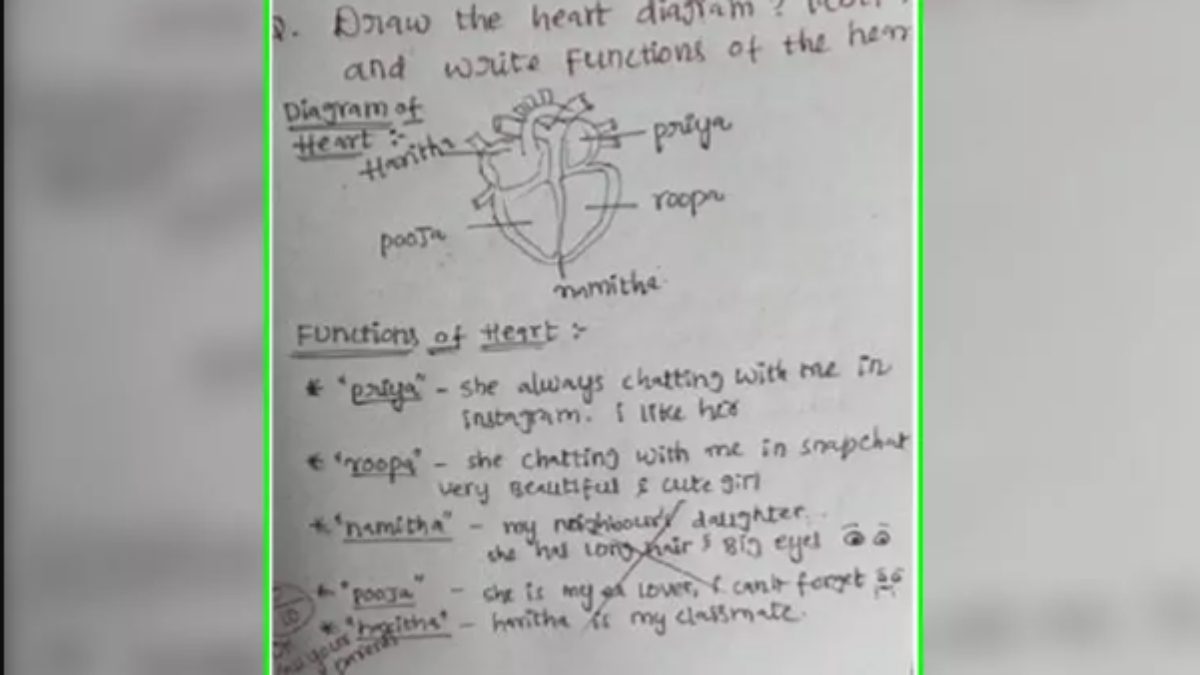 Q. Draw the heart diagram?
and write Functions of the
Diagram of
Heart :-
Haritha
priya
roopa
pooja
namitha
Functions of Heart :-
* "priya" - she always chatting with me in
instagram. i like her
* "roopa" - she chatting with me in snapchat
very Beautiful & cute girl
* "namitha" - my neighbour's daughter.
she has long hair & Big eyes
* "pooja" - she is my ex lover, i can't forget
* "haritha" - haritha is my classmate.
your
parents